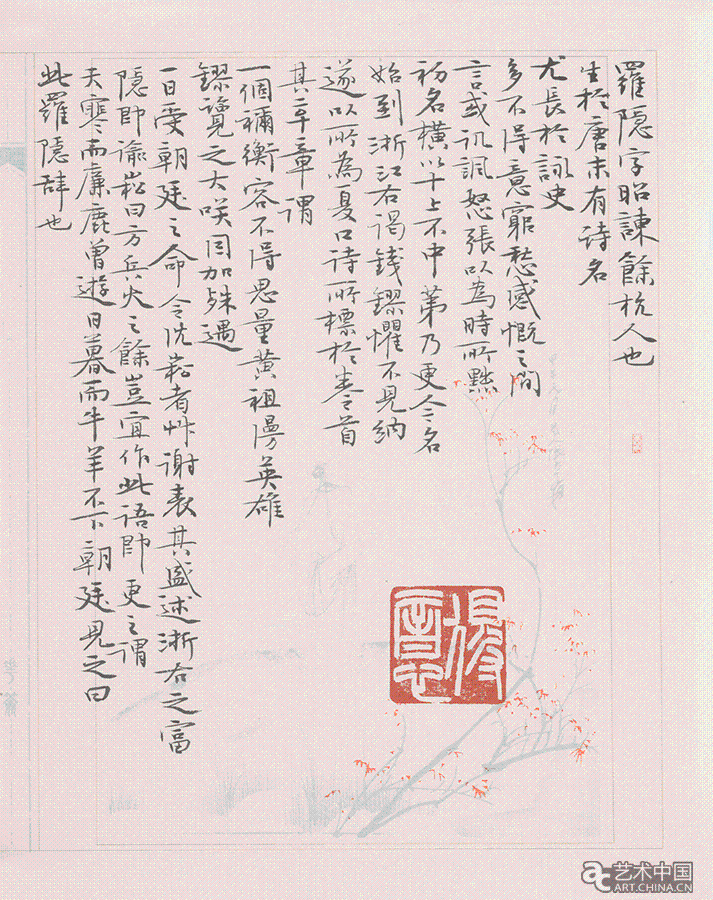 羅隱字昭諫餘杭人也
生於唐末有诗名
尤長於詠史
多不得意窮愁感慨之間
言或讥諷怒張以為時所黜
初名横以十上不中第乃更今名
始到浙江右谒錢鏐懼不見納
遂以所為夏口诗所標於卷首
其卒章谓
一個禰衡容不得思量黄祖謾英雄
鏐覽之大咲因加殊遇
一日受朝廷之命令沈崧者艸谢表其盛述浙右之富
隐即谕崧曰方兵火之餘豈宜作此語即更之谓
天寒而麋鹿曾遊日暮而牛羊不下朝廷見之曰
此羅隱辞也
艺术中国
ART.CHINA.CN